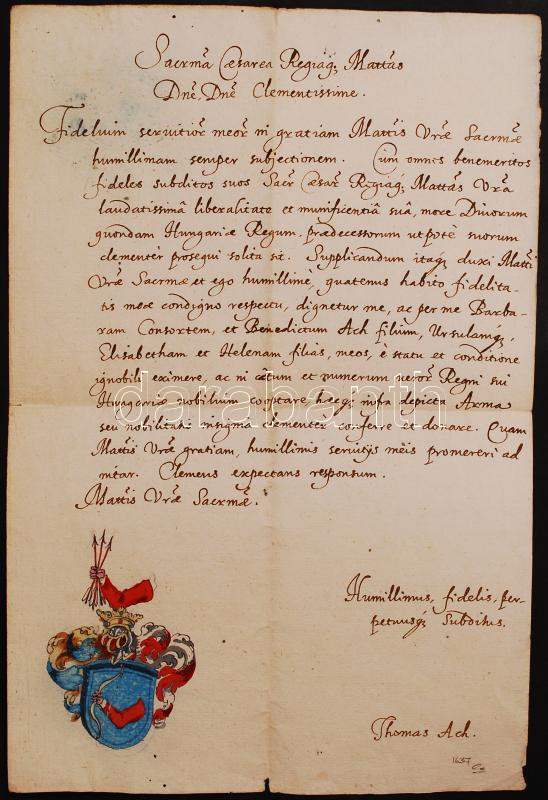 Sacrmã Cæsarea Regiaq; Mattãs
Dnẽ, Dnẽ Clementissime.
Fidelium servitior meor in gratiam Mattis Vræ Sacrmæ
humillimam semper subjectionem. Cum omnes benemeritos
fideles subditos suos Sacr Cæsar Regiaq; Mattas Vra
laudatissimâ liberalitate et munificentiâ suâ, more Divorum
quondam Hungariæ Regum, prædecessorum utpote suorum
clementer prosequi solita sit. Supplicandum itaq; duxi Matti
Vræ Sacrmæ et ego humillime, quatenus habito fidelita-
tis meæ condigno respectu, dignetur me, ac per me Barba-
ram Consortem, et Benedictum Ach filium, Ursulamq;,
Elisabetham et Helenam filias, meos, è statu et conditione
ignobili eximere, ac in cætum et numerum Regni sui
Hungariæ nobilium cooptare, hæcq; infra depicta Arma
seu nobilitatis insignia clementer conferre et donare. Quam
Mattis Vræ gratiam, humillimis servitys meis promereri ad
nitar. Clemens expectans responsum.
Mattis Vræ Sacrmæ.
Humillimus, fidelis, per-
petuusq; Subditus.
Thomas Ach.
1637
darabanth